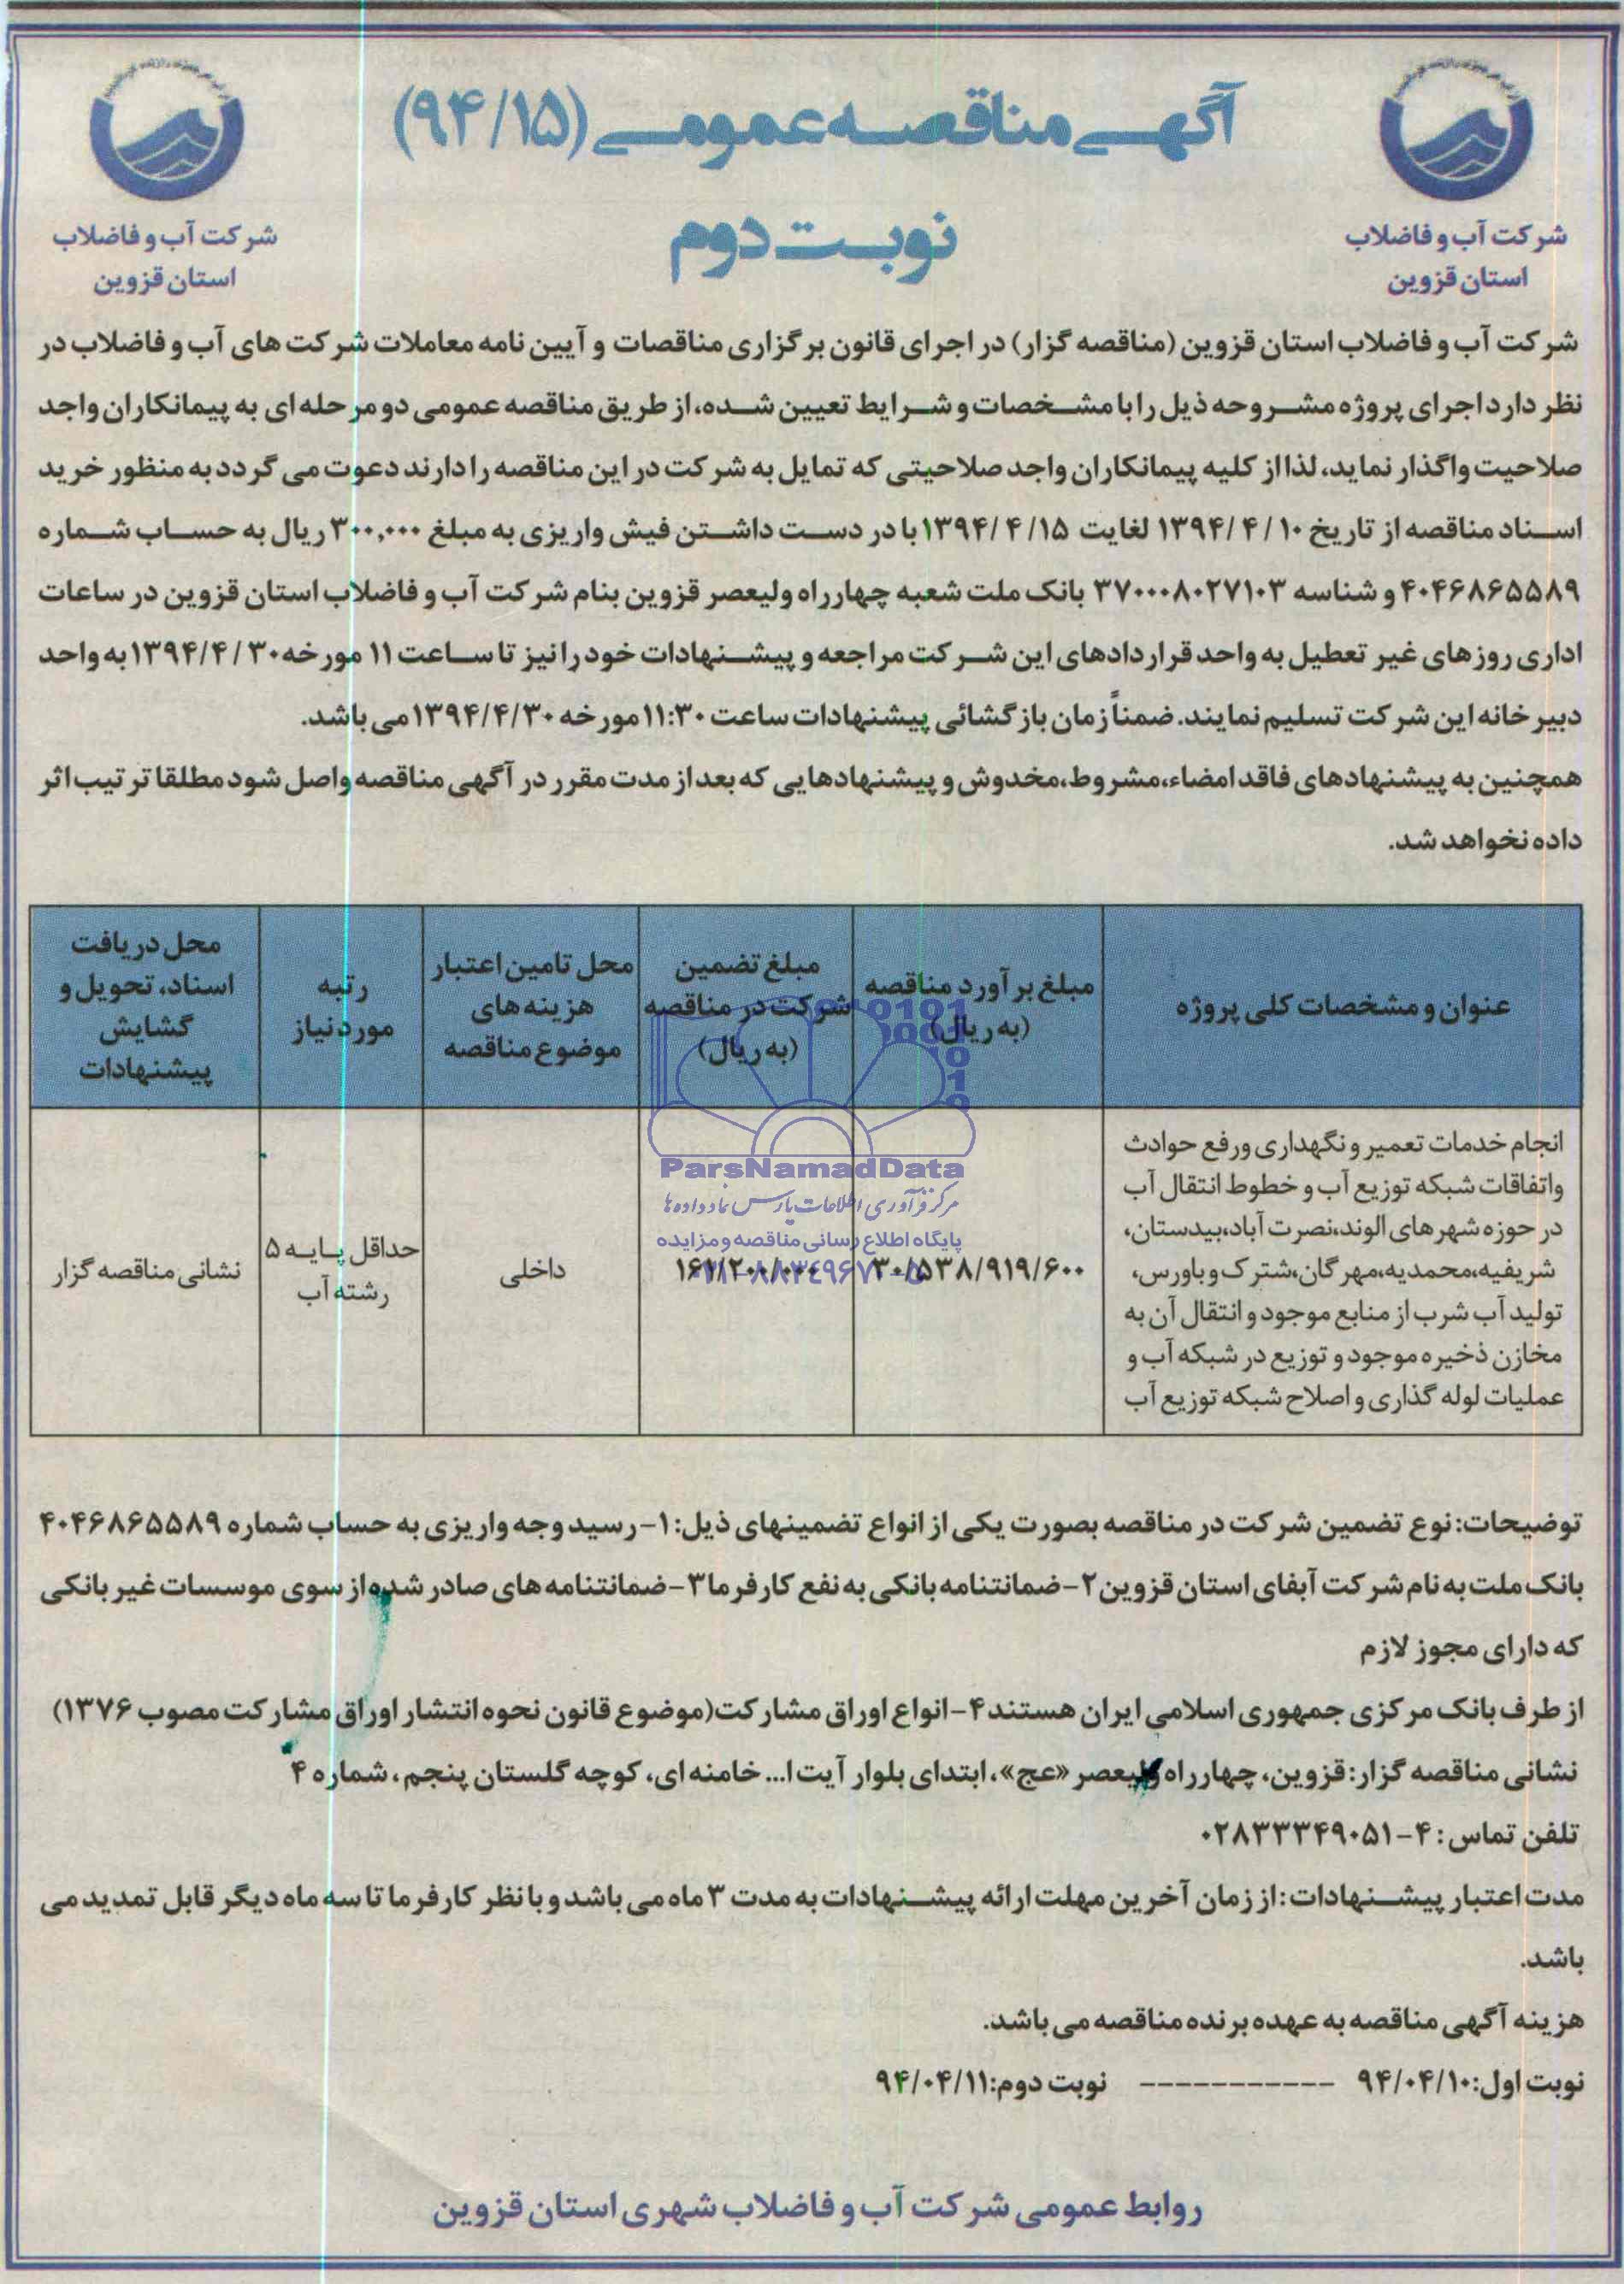 آگهی مناقصه عمومی (۹۴/۱۵)
نوبت دوم
شرکت آب و فاضلاب
استان قزوین
شرکت آب و فاضلاب
استان قزوین
شرکت آب و فاضلاب استان قزوین (مناقصه گزار) در اجرای قانون برگزاری مناقصات و آیین نامه معاملات شرکت های آب و فاضلاب در
نظر دارد اجرای پروژه مشروحه ذیل را با مشخصات و شرایط تعیین شده، از طریق مناقصه عمومی دو مرحله ای به پیمانکاران واجد
صلاحیت واگذار نماید، لذا از کلیه پیمانکاران واجد صلاحیتی که تمایل به شرکت در این مناقصه را دارند دعوت می گردد به منظور خرید
اسناد مناقصه از تاریخ ۱۳۹۴/۴/۱۰ لغایت ۱۳۹۴/۴/۱۵ با در دست داشتن فیش واریزی به مبلغ ۳۰۰,۰۰۰ ریال به حساب شماره
۴۰۴۶۸۶۵۵۸۹ و شناسه ۳۷۰۰۰۸۰۲۷۱۰۳ بانک ملت شعبه چهارراه ولیعصر قزوین بنام شرکت آب و فاضلاب استان قزوین در ساعات
اداری روزهای غیر تعطیل به واحد قراردادهای این شرکت مراجعه و پیشنهادات خود را نیز تا ساعت ۱۱ مورخه ۱۳۹۴/۴/۳۰ به واحد
دبیرخانه این شرکت تسلیم نمایند. ضمناً زمان بازگشائی پیشنهادات ساعت ۱۱:۳۰ مورخه ۱۳۹۴/۴/۳۰ می باشد.
همچنین به پیشنهادهای فاقد امضاء، مشروط، مخدوش و پیشنهادهایی که بعد از مدت مقرر در آگهی مناقصه واصل شود مطلقا ترتیب اثر
داده نخواهد شد.
عنوان و مشخصات کلی پروژه
مبلغ برآورد مناقصه
(به ریال)
مبلغ تضمین
شرکت در مناقصه
(به ریال)
محل تامین اعتبار
هزینه های
موضوع مناقصه
رتبه
مورد نیاز
محل دریافت
اسناد، تحویل و
گشایش
پیشنهادات
انجام خدمات تعمیر و نگهداری و رفع حوادث
و اتفاقات شبکه توزیع آب و خطوط انتقال آب
در حوزه شهرهای الوند، نصرت آباد، بیدستان،
شریفیه، محمدیه، مهرگان، شترک و باورس،
تولید آب شرب از منابع موجود و انتقال آن به
مخازن ذخیره موجود و توزیع در شبکه آب و
عملیات لوله گذاری و اصلاح شبکه توزیع آب
۳۰/۵۳۸/۹۱۹/۶۰۰
داخلی
حداقل پایه ۵
رشته آب
نشانی مناقصه گزار
ParsNamadData
مرکز فرآوری اطلاعات پارس نماد داده ها
پایگاه اطلاع رسانی مناقصه و مزایده
توضیحات: نوع تضمین شرکت در مناقصه بصورت یکی از انواع تضمینهای ذیل: ۱- رسید وجه واریزی به حساب شماره ۴۰۴۶۸۶۵۵۸۹
بانک ملت به نام شرکت آبفای استان قزوین ۲- ضمانتنامه بانکی به نفع کارفرما ۳- ضمانتنامه های صادر شده از سوی موسسات غیر بانکی
که دارای مجوز لازم
از طرف بانک مرکزی جمهوری اسلامی ایران هستند ۴- انواع اوراق مشارکت (موضوع قانون نحوه انتشار اوراق مشارکت مصوب ۱۳۷۶)
نشانی مناقصه گزار: قزوین، چهارراه ولیعصر «عج»، ابتدای بلوار آیت ا... خامنه ای، کوچه گلستان پنجم، شماره ۴
تلفن تماس: ۴-۰۲۸۳۳۳۴۹۰۵۱
مدت اعتبار پیشنهادات: از زمان آخرین مهلت ارائه پیشنهادات به مدت ۳ ماه می باشد و با نظر کارفرما تا سه ماه دیگر قابل تمدید می
باشد.
هزینه آگهی مناقصه به عهده برنده مناقصه می باشد.
نوبت اول: ۹۴/۰۴/۱۰ ----------- نوبت دوم: ۹۴/۰۴/۱۱
روابط عمومی شرکت آب و فاضلاب شهری استان قزوین